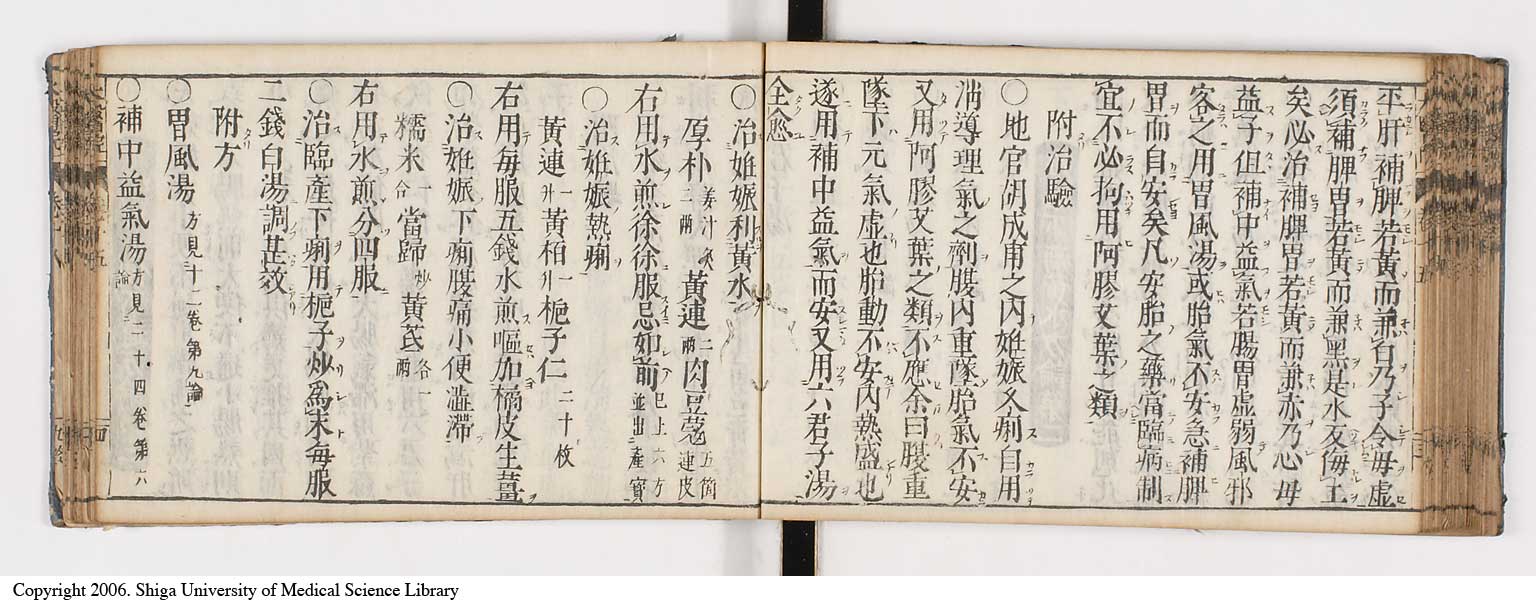 平肝補脾若黄而兼白乃子令母虚
須補脾胃若黄而兼黑是水反侮土
矣必治補脾胃若黄而兼赤乃心母
益子但補中益氣若腸胃虚弱風邪
客之用胃風湯或胎氣不安急補脾
胃而自安矣凡安胎之藥當臨病制
宜不必拘用阿膠艾葉之類
附治驗
○地官胡成甫之内姙娠久痢自用
消導理氣之劑腹内重墜胎氣不安
又用阿膠艾葉之類不應余曰腹重
墜下元氣虚也胎動不安内熱盛也
遂用補中益氣而安又用六君子湯
全愈
○治姙娠利黄水
厚朴姜汁炙二兩黄連二兩肉豆蔻五箇連皮
右用水煎徐徐服忌如前已上六方並出産寳
○治姙娠熱痢
黄連一升黄栢一升梔子仁二十枚
右用每服五錢水煎嘔加橘皮生薑
○治姙娠下痢腹痛小便澁滯
糯米一合當歸炒黄芪各一兩
右用水煎分四服
○治臨産下痢用梔子炒爲末每服
二錢白湯調甚效
附方
○胃風湯方見十二卷第九論
○補中益氣湯方見二十四卷第六論